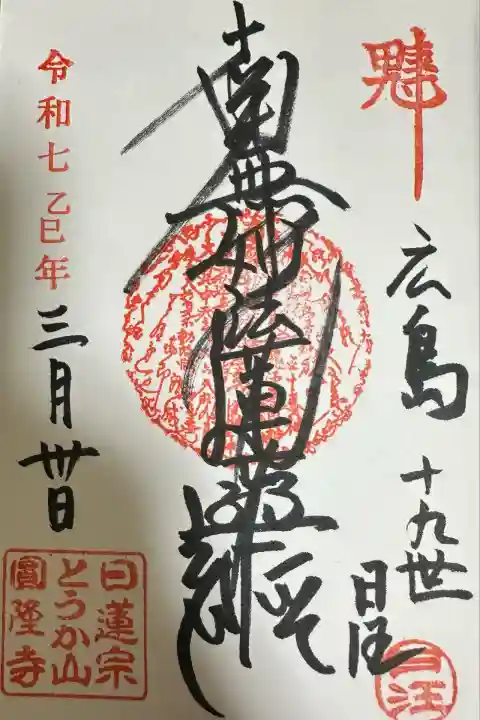 広島 十九世
日汪
日汪
南無妙法蓮華経
令和七乙巳年三月卅日
日蓮宗
とうか山
圓隆寺